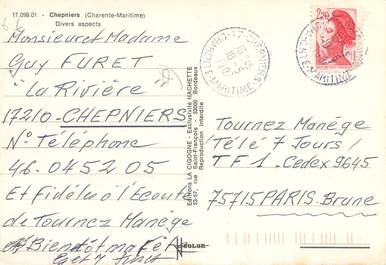 17.099.01 - Chepniers (Charente-Maritime)
Divers aspects
Monsieur et Madame
Guy FURET
"La Rivière"
17210-CHEPNIERS
N° Téléphone
46.04 52 05
Et Fidèle à l'Ecoute
de Tournez Manège
Bientôt
Editions LA CIGOGNE - Exclusivité HACHETTE
Reproduction interdite
2,20
Tournez Manège
Télé 7 Jours /
TF1. Cedex 9645
75715 PARIS. Brune